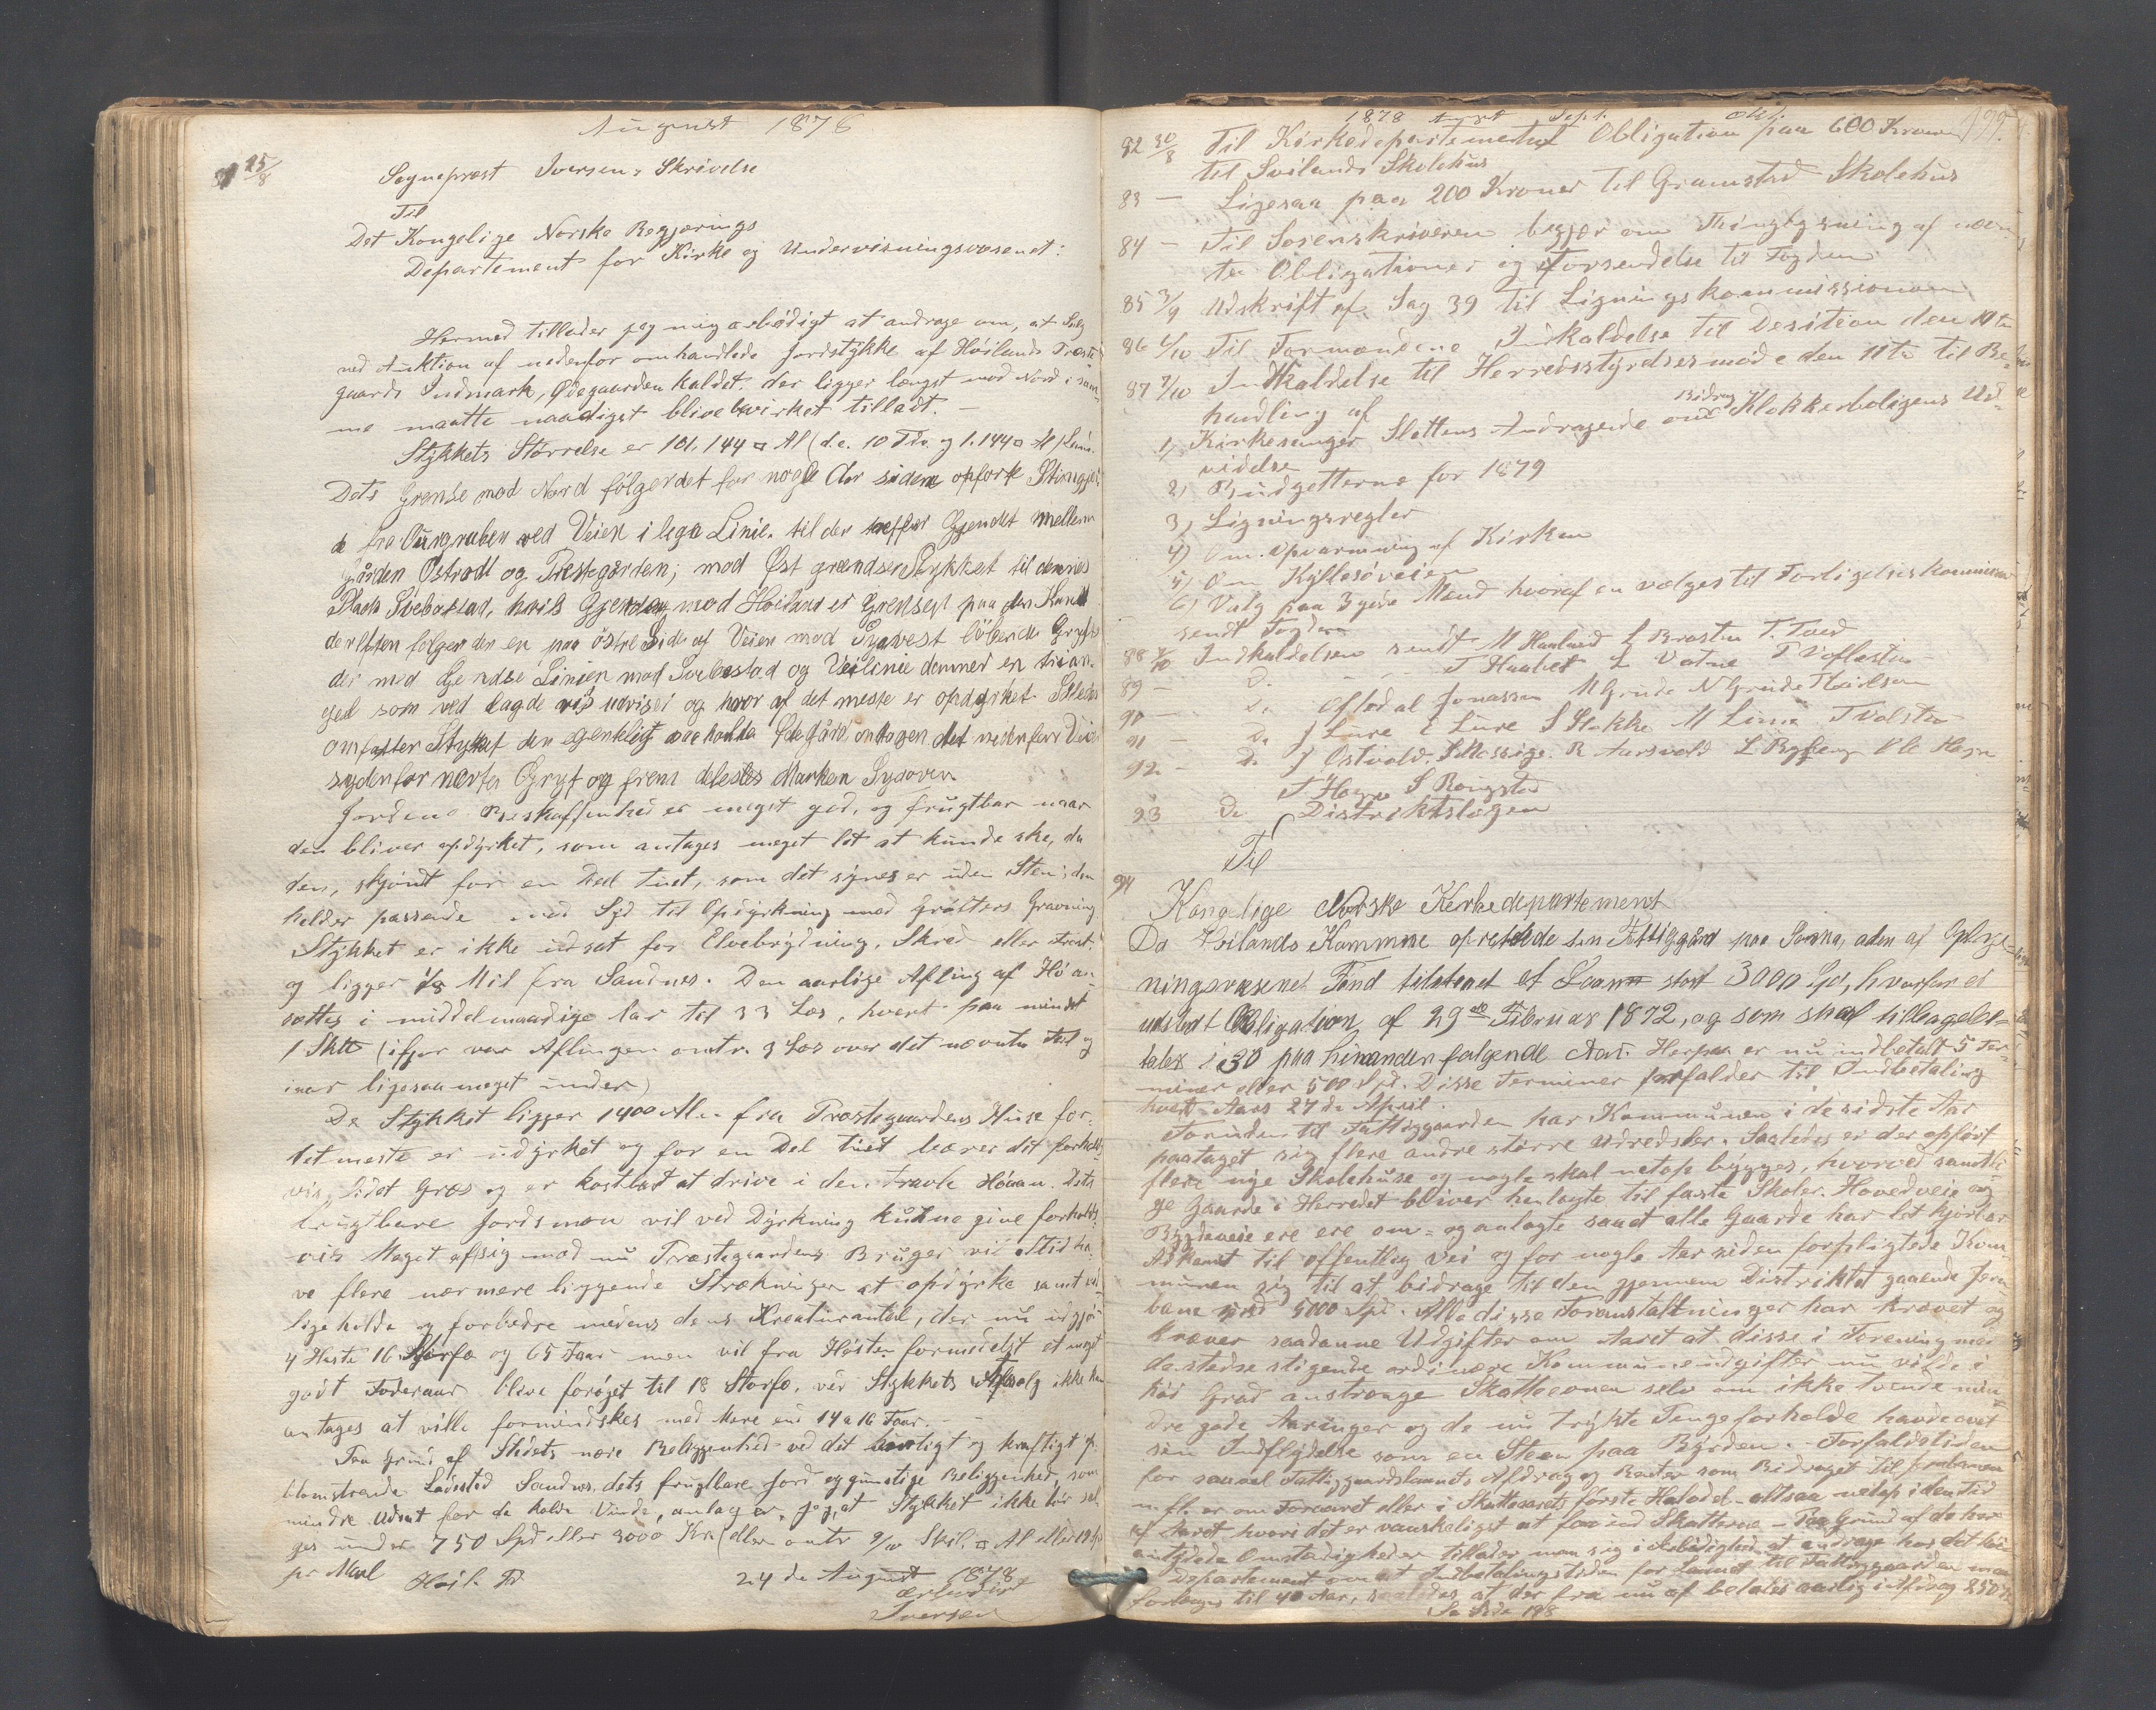 August 1878
81 25/8
Sogneprest Iversens Skrivelse
Til
Det Kongelige Norske Regjerings
Departement for Kirke og Undervisningsvæsenet:
Hermed tillader jeg mig ærbødigst at andrage om, at Salg
ved Auktion af nedenfor omhandlede Jordstykke af Høilands Præste-
gaards Indmark, Ødegaarden kaldet, der ligger længst mod Nord i sam-
me maatte naadigst blive bevirket tilladt. —
Stykkets Størrelse er 101,144 □ Al (d.e. 10 Tdr. og 1,144 □ Al
Dets Grense mod Nord følger det for nogle Aar siden opførte Stengjer-
de fra Uurgraben ved Veien i lege Linie til der treffer Gjerdet mellem
Gården Østradt og Prestegården; mod Øst grændser Stykket til dennes
Plads Svebastad, hvis Gjerde mod Høiland er Grensen paa den Kant
derefter følger den en paa östre Side af Veien mod Sydvest löbende Gryft
der med Grendse Linien mod Svebestad og Veilinie danner en trian-
gel som ved lagde rids udviser og hvor af det meste er opdyrket. Saaledes
omfatter Stykket den egentlig saa kaldte Ødegård, undtagen det nedenfor Dui
sydenfor nevnte Gryft og frem deles Marken Sydover
Jordens Beskaffenhed er meget god, og frugtbar naar
den bliver opdyrket, som antages meget let at kunde ske, da
den, skjönt for en Deel tuet, som det synes er uden Steni; den
helder passende mod Syd til Opdyrkning med Gröfters Gravning
Stykket er ikke udsat for Elvebrydning, Skred eller Frost,
og ligger 1/8 Mil fra Sandnes. Den aarlige Afling af Hö an-
sættes i middelmaadige Aar til 33 Læs, hvert paa mindst
1 Sktt (ifjor var Aflingen omtr. 3 Læs over det nævnte Tal og
iaar ligesaameget under)
Da Stykket ligger 1400 Alen fra Præstegaardens Huse for-
det meste er udyrket og for en Del tuet bærer det forholds-
vis lidet Græs og er kostbart at drive i den travle Höaan. Dets
frugtbare Jordsmon vil ved Dyrkning kunne give forholds-
vis Meget afsig mod nu Præstegaardens Bruger vil altid ha-
ve flere nærmere liggende Strækninger at opdyrke samt ved-
lige holde og forbedre medens dens Kreaturantal, der nu udgjör
4 Heste 16 Storfæ og 65 Faar men vil fra Hösten formedelst et meget
godt Foderaar blive foröget til 18 Storfæ, ved Stykkets Afsalg ikke kan
antages at ville formindskes med Mere end 14 a 16 Faar. —
Paa Grund af Stedets nære Beliggenhed ved det livligt og kraftigt op-
blomstrende Ladested Sandnes, dets frugtbare Jord og gunstige Beliggenhed, som
mindre udsat for de kolde Vinde, antager jeg, at Stykket ikke bör sæl-
ges under 750 Spd eller 3000 Kr (eller omtr 9/10 Skil. □ Al eller
pr Maal
Høil. Pr 24 de August 1878
ærbødigst
Iversen
1878 August Sept. Okt. 199.
82 30/8 Til Kirkedepartementet Obligation paa 600 Kroner
til Svilands Skolehus
83 — Ligesaa paa 200 Kroner til Gramstad Skolehus
84 — Til Sorenskriveren begjær om Thinglysning af næv-
te Obligationer og Forsendelse til Fogden
85 3/9 Udskrift af Sag 39 til Ligningskommissionen
86 4/10 Til Formændene Indkaldelse til Desition den 10 te
87 7/10 Indkaldelse til Herredsstyrelsesmøde den 11te til Be-
handling af
1) Kirkesanger Slettens Andragende om Bidrag Klokkerboligens Ud-
videlse
2) Budgetterne for 1879
3) Ligningsregler
4) Om opvarmning af Kirken
5) Om Kyllesöveien
6) Valg paa 3 gode Mænd hvoraf en vælges til Forligelseskommissær
sendt Fogden
88 7/10 Indkaldelsen sendt M Haaland L Brasten T. Tved
89 — Do. — T Haabet L Vatne T
90 — Do Oftedal Jonassen M Grude N Grude T
91 — Do J Lure E Lure S Stokke M Lima T
92 — Do J Ostvold. S Massige. R Aarsvold L Bybjerg Ole Høgn
T Hogne S Rongstad
93 Do Distriktslægen
94 Til
Kongelige Norske Kirkedepartement
Da Høilands Kommune oprettede sin Fattiggård paa Sonna, aden af Oplys-
ningsvæsenet Fond tilstaaet et Laan stort 3000 Spd, hvorfor er
udstedt Obligation af 29de Februar 1872, og som skal tilbagebe-
tales i 30 paa hinanden følgende Aar. Herpaa er nu indbetalt 5 Ter-
miner eller 500 Spd. Disse Terminer forfalder til Indbetaling
hvert Aars 27 de April.
Foruden til Fattiggaarden har Kommunen i de sidste Aar
paataget sig flere andre større Udredsler. Saaledes er der opført
flere nye Skolehuse og nogle skal netop bygges, hvorved samtli-
ge Gaarde i Herredet bliver henlagte til faste Skoler. Hovedveie og
Bygdeveie ere om- og anlagte samt alle Gaarde har let kjørbar
Adkomst til offentlig Vei og for nogle Aar siden forpligtede Kom-
munen sig til at bidrage til den gjennem Distriktet gaaende Jern-
bane med 5000 Spd. Alle disse Foranstaltninger har krævet og
kræver saadanne Udgifter om Aaret at disse i Forening med
de stedse stigende ordinære Kommuneudgifter nu vilde i
høi Grad anstrenge Skatteevnen selv om ikke tvende min-
dre gode Aaringer og de nu trykte Pengeforholde havde øvet
sin Indflydelse som en Steen paa Byrden. — Forfaldstiden
for saavel Fattiggaardslaanets Afdrag og Renter som Bidraget til Jernbanen
m. fl. er om Foraaret eller i Skatteaarets første Halvdel — altsaa netop i den Tid
af Aaret hvori det er vanskeligst at faa ind Skatterne. — Paa Grund af de her
antydede Omstædigheder tillader man sig i ærbødighed at andrage hos det høie
Departement om at Indbetalingstiden for Laanet til Fattiggaarden maa
forlænges til 40 Aar, saaledes at der fra nu af betales aarlig i Afdrag 250
Se Side 198